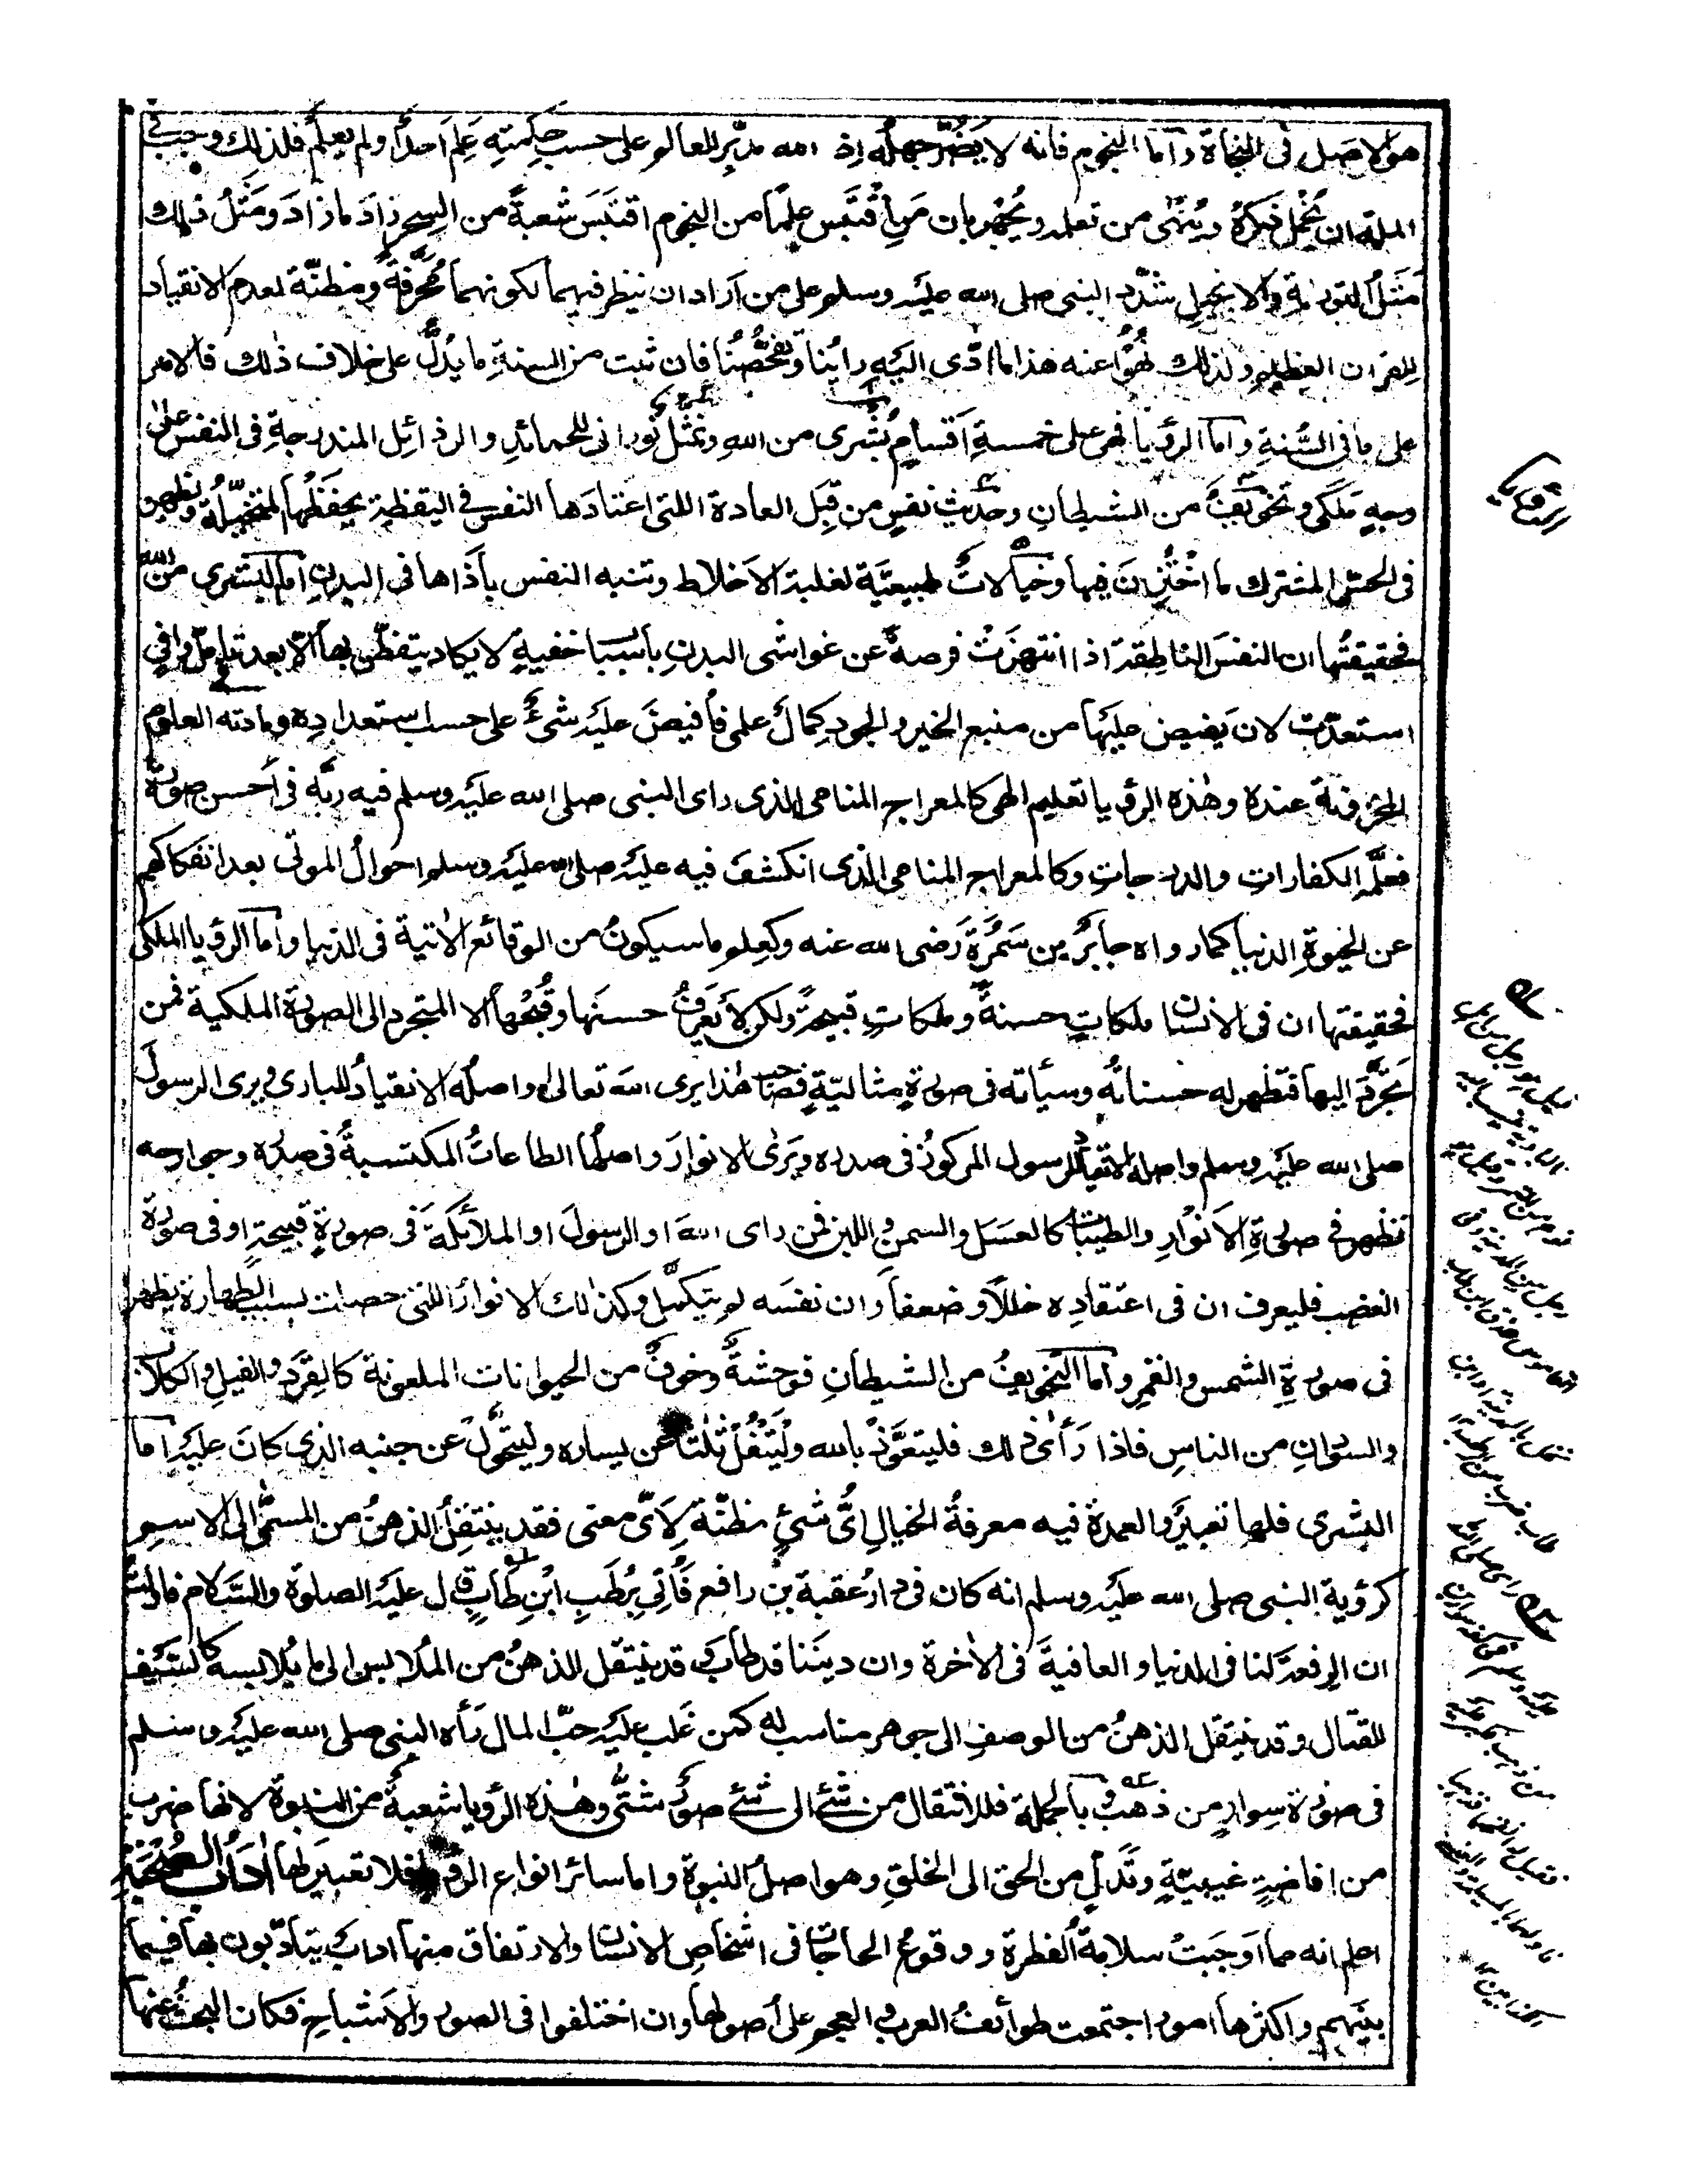 هو الاصل فى النجاة واما النجوم فانه لا يضر جهله اذ الله مدبر للعالم على حسب حكمته علم احدا ولم يعلم فلذلك وجب فى
الملة ان يخمل ذكره وينهى من تعلمه ويجهر بان من اقتبس علما من النجوم اقتبس شعبة من السحر زاد ما زاد ومثل ذلك
مثل التورٰىة والانجيل شدد النبى صلى الله عليه وسلم على من اراد ان ينظر فيهما لكونهما محرفة ومظنة لعدم الانقياد
للقرآن العظيم ولذلك نهوا عنه هذا ما ادّى اليه رايُنا وتفحّصُنا فان ثبت من السنة ما يدُلُّ على خلاف ذلك فالامر
على ما فى السُّنة واما الرؤيا فهى على خمسة اقسام بُشرى من الله وتمثل نُورانى للحمائد والرذائل المندرجة فى النفس على
وجهٍ مَلَكى وتخويفٌ من الشيطان وحديث نفسٍ من قِبَل العادة اللتى اعتادها النفس فى اليقظة يحفظها المتخيلة ويظهر
فى الحس المشترك ما اختزن فيها وخيالاتٌ طبيعيّة لغلبة الاخلاط وتنبه النفس بأذاها فى البدن اما البشرى من الله
فحقيقتُها ان النفس الناطقة اذا انتهزت فرصةً عن غواشى البدن بأسباب خفيةٍ لا يكاد يتفطّن بها الا بعد تامل وافٍ
استعدّت لان يفيض عليها من منبع الخير والجود كمالٌ علمى فأفيض عليه شئٌ على حسب استعداده ومادته العلوم
المخزونة عنده وهٰذه الرؤيا تعليم الهى كالمعراج المنامى الذى راى النبى صلى الله عليه وسلم فيه ربَّه فى أحسن صورة
فعلَّمه الكفارات والدرجات وكالمعراج المنامى الذى انكشف فيه عليه صلى الله عليه وسلم احوالُ الموتٰى بعد انفكاكهم
عن الحيوة الدنيا كما رواه جابرُ بن سَمُرَة رَضى الله عنه وكعلم ما سيكونُ من الوقائع الاٰتية فى الدنيا واما الرؤيا الملكى
فحقيقتها ان فى الانسان ملكاتٍ حسنةً وملكاتٍ قبيحةً ولكن لا يَعرفُ حسنَها وقُبحَها الا المتجرد الى الصورة الملكية فمن
تجرَّد اليها فتظهر له حسناتُه وسيأته فى صورةٍ مثاليّةٍ فصاحب هٰذا يرى الله تعالىٰ واصلُه الانقيادُ للبارى ويرى الرسولَ
صلى الله عليه وسلم واصله الانقياد للرسول المركوزُ فى صدره ويَرىٰ الانوارَ واصلُها الطاعاتُ المكتسبةُ فى صدره وجوارحه
تظهر فى صورة الانوار والطيبات كالعسَل والسمن واللبن فمن راى اللهَ او الرسولَ او الملائكةَ فى صورةٍ قبيحةٍ او فى صورة
الغضب فليعرف ان فى اعتقاده خللا وضعفا وان نفسَه لم يتكمّل وكذلك الانوار اللتى حصلت بسبب الطهارة يظهر
فى صورة الشمس والقمر واما التخويفُ من الشيطان فوحشةٌ وخوفٌ من الحيوانات الملعونة كالقرد والفيل والكلاب
والسودان من الناس فاذا رَأىٰ ذلك فليتعوَّذ بالله وليتفُل ثلثا عن يساره وليتحوَّل عن جنبه الذى كان عليه اما
البشرى فلها تعبيرٌ والعمدة فيه معرفةُ الخيال اىُّ شئٍ مظنّة لاىّ معنى فقد ينتقلُ الذهنُ من المسمّى الى الاسم
كرؤية النبى صلى الله عليه وسلم انه كان فى دار عقبة بن رافع فأتى برُطَب ابن طابٍ قال عليه الصلوة والسّلام فاولت
ان الرفعة لنا فى الدنيا والعافيةَ فى الاٰخرة وان ديننا قد طاب وقد ينتقل الذهنُ من المُلابس الى ما يُلابسه كالسّيف
للقتال وقد ينتقل الذهنُ من الوصف الى جوهر مناسب له كمن غلب عليه حبّ المال رَأه النبى صلى الله عليه وسلم
فى صورة سوار من ذهب وبالجملة فللانتقال من شئ الى شئ صورٌ شتّٰى وهٰذه الرؤيا شعبةٌ من النبوة لانها ضرب
من افاضةٍ غيبيّةٍ وتَدلّ من الحق الى الخلق وهو اصل النبوة واما سائر انواع الرؤيا فلا تعبير لها اٰداب الصحبة
اعلم انه مما اوجبَتْ سلامةُ الفطرة ووقوعُ الحاجات فى اشخاص الانسان والارتفاق منها اداب يتأدّبون بها فيما
بينهم واكثرها امور اجتمعت طوائفُ العرب والعجم على اصولها وان اختلفوا فى الصور والاشباح فكان البحث عنها